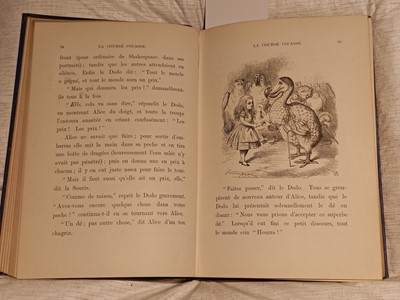 LA COURSE COCASSE.
front (pose ordinaire de Shakespeare dans ses
portraits); tandis que les autres attendaient en
silence. Enfin le Dodo dit: "Tout le monde
a gagné, et tout le monde aura un prix."
"Mais qui donnera les prix?" demandèrent-
ils tous à la fois.
"Elle, cela va sans dire," répondit le Dodo,
en montrant Alice du doigt, et toute la troupe
l'entoura aussitôt en criant confusément: "Les
prix! Les prix!"
Alice ne savait que faire; pour sortir d'em-
barras elle mit la main dans sa poche et en tira
une boîte de dragées (heureusement l'eau salée n'y
avait pas pénétré); puis en donna une en prix à
chacun; il y en eut juste assez pour faire le tour.
"Mais il faut aussi qu'elle ait un prix, elle,"
dit la Souris.
"Comme de raison," reprit le Dodo gravement.
"Avez-vous encore quelque chose dans votre
poche?" continua-t-il en se tournant vers Alice.
"Un dé; pas autre chose," dit Alice d'un ton
chagrin.
LA COURSE COCASSE.
"Faites passer," dit le Dodo. Tous se grou-
pèrent de nouveau autour d'Alice, tandis que le
Dodo lui présentait solennellement le dé en
disant: "Nous vous prions d'accepter ce superbe
dé." Lorsqu'il eut fini ce petit discours, tout
le monde cria "Hourra!"